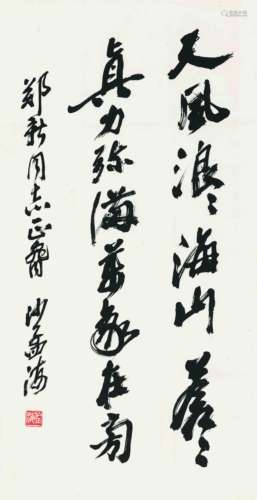 天風浪浪海山蒼蒼
真力弥滿萬象在旁
郑新同志正腕 沙孟海